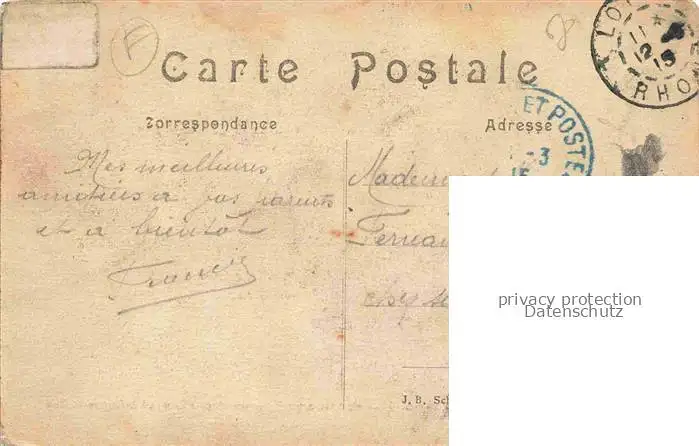 F
8
Carte Postale
Correspondance
Adresse
Mes meilleures
amitiés a vos parents
et a bientôt
Francis
Mademoi
Fernan
chez
LO
11
12
15
RHO
ET POSTE
-3
15
privacy protection
Datenschutz
J. B. Sch